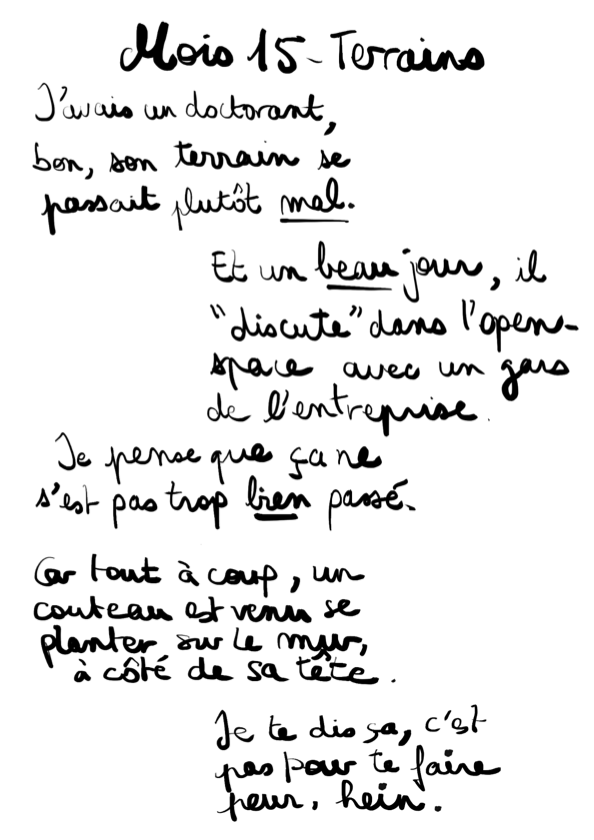 Mois 15 - Terrains
J'avais un doctorant,
bon, son terrain se
passait plutôt mal.
Et un beau jour, il
"discute" dans l'open-
space avec un gars
de l'entreprise.
Je pense que ça ne
s'est pas trop bien passé.
Car tout à coup, un
couteau est venu se
planter sur le mur,
à côté de sa tête.
Je te dis ça, c'est
pas pour te faire
peur, hein.